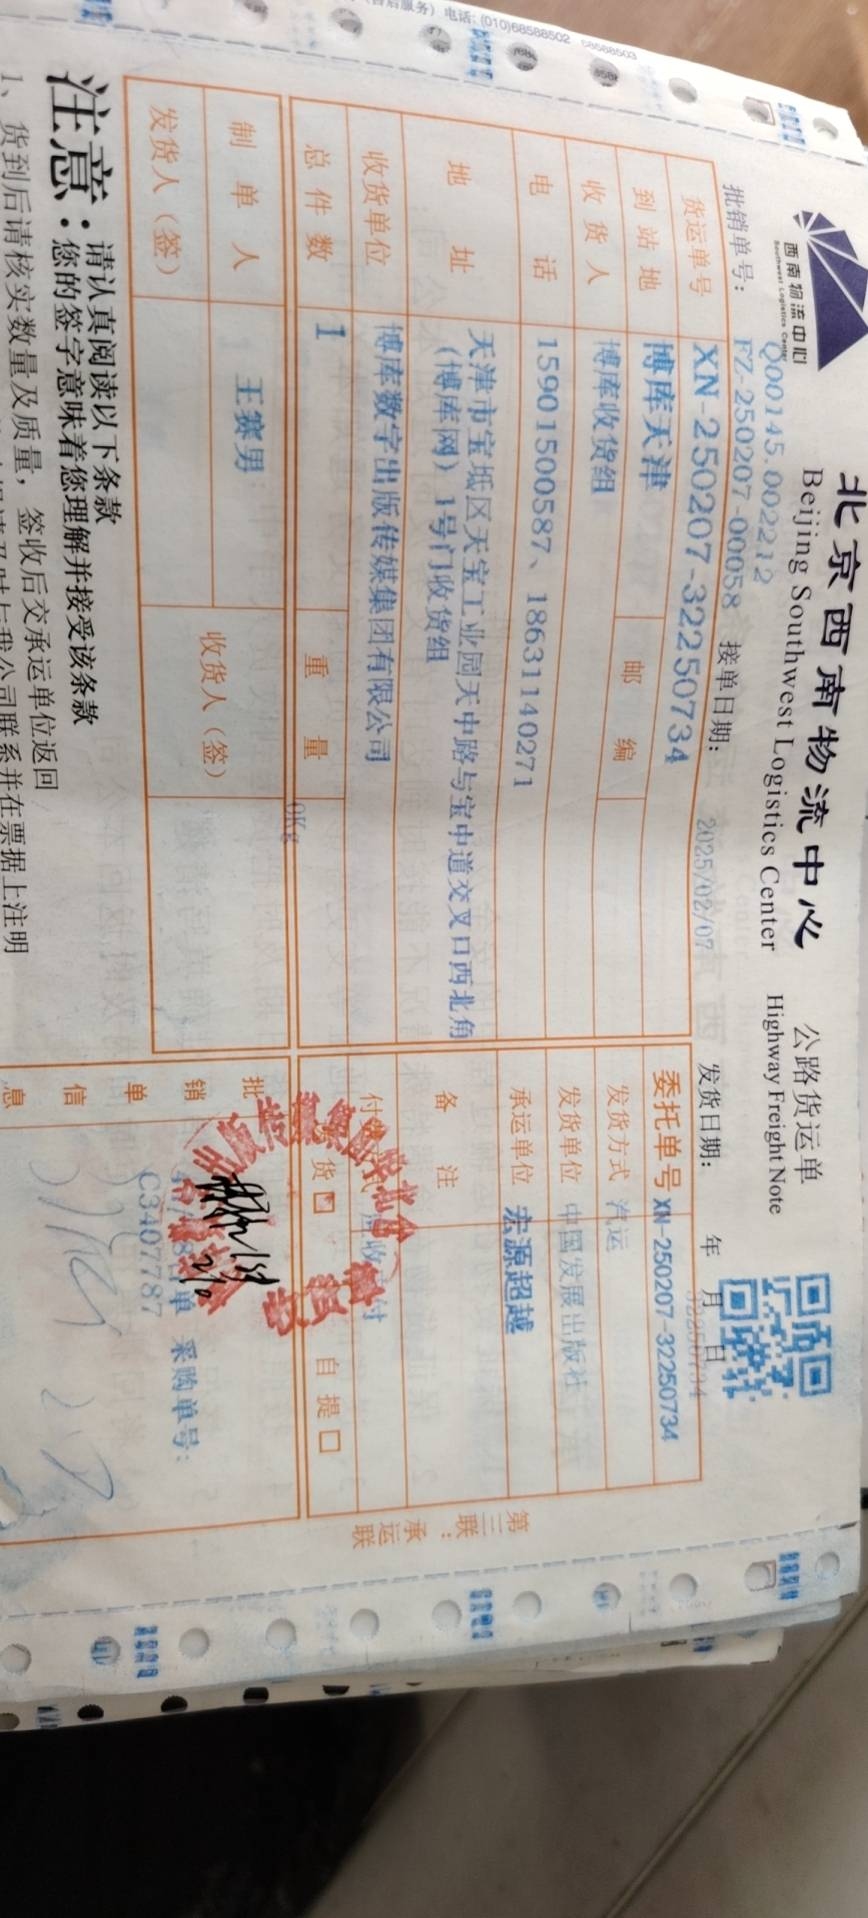 (售后服务) 电话: (010)68588502 68588503
西南物流中心
Southwest Logistics Center
北京西南物流中心 公路货运单
Beijing Southwest Logistics Center Highway Freight Note
Q00145.002212
批销单号: FZ-250207-00058 接单日期: 2025/02/07 发货日期: 年 月 日
32250734
货运单号 XN-250207-32250734 委托单号 XN-250207-32250734
到站地 博库天津 邮编 发货方式 汽运
收货人 博库收货组 发货单位 中国发展出版社
电话 15901500587、18631140271 承运单位 宏源超越
地址 天津市宝坻区天宝工业园天中路与宝中道交叉口西北角
(博库网) 1号门收货组 备注
收货单位 博库数字出版传媒集团有限公司
总件数 1 重量 0Kg 货 自提
制单人 王赛男 收货人(签) 批销单信息
发货人(签) 单 采购单号:
C3407787
第三联:承运联
注意: 请认真阅读以下条款
您的签字意味着您理解并接受该条款
1、货到后请核实数量及质量，签收后交承运单位返回